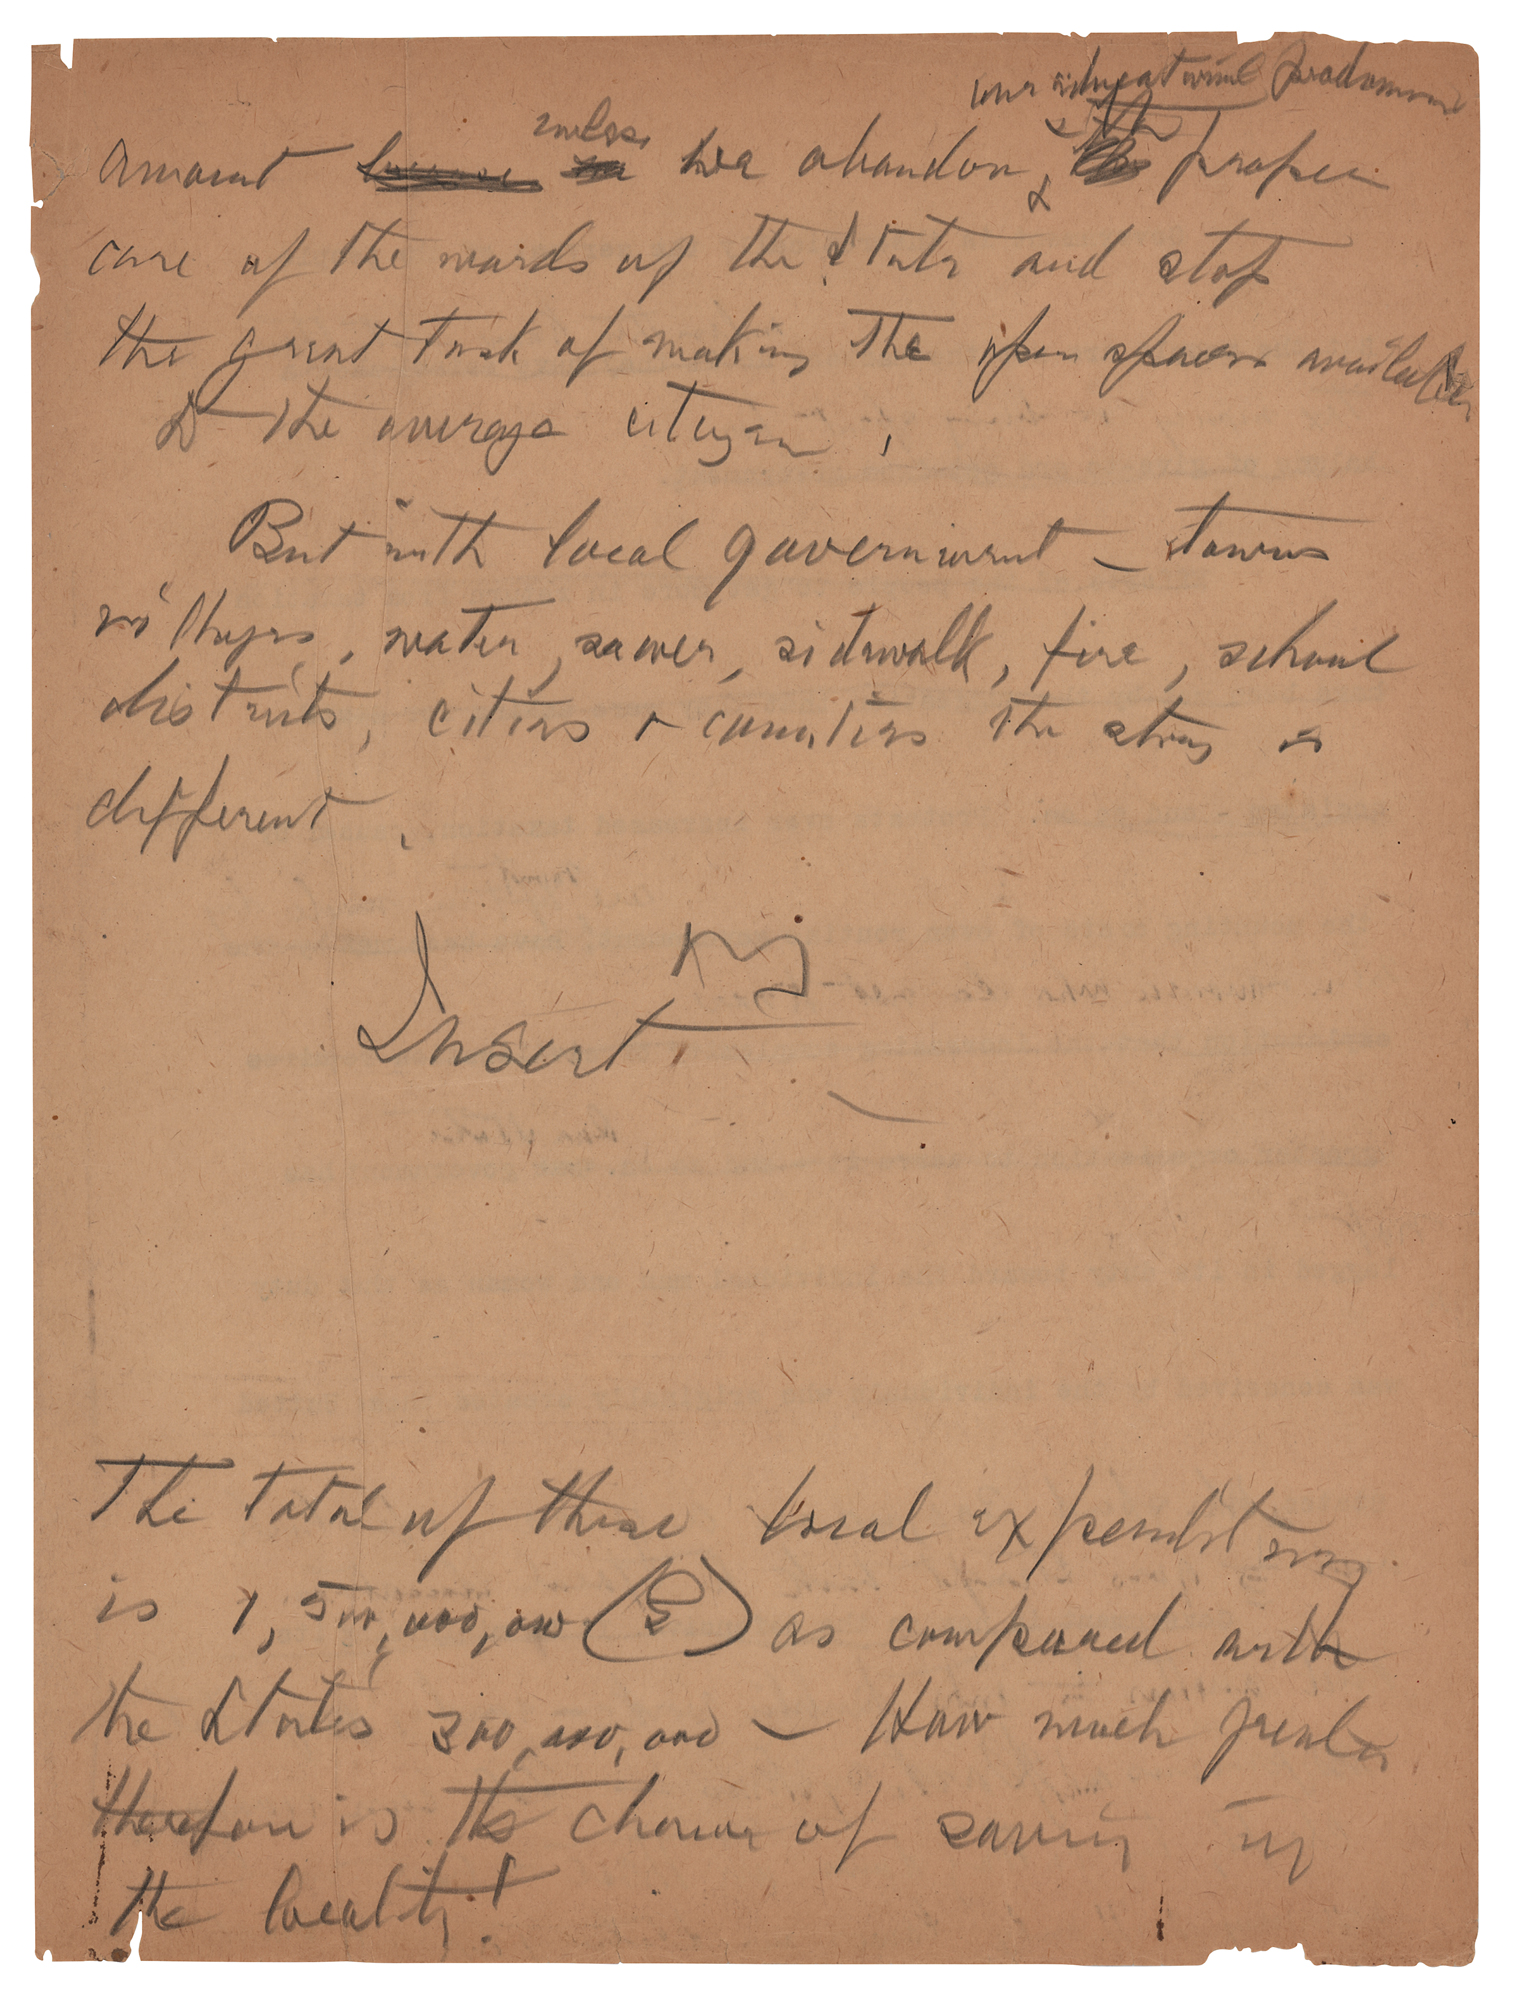 our educational program
unless
amount we abandon, & the proper
care of the wards of the State and stop
the great task of making the open spaces available
to the average citizen.
But with local government – towns
villages, water, sewer, sidewalk, fire, school
districts, cities & counties the story is
different.
Insert
The total of these local expenditures
is 1,500,000,000 (?) as compared with
the States 300,000,000 – How much greater
therefore is the chance of saving in
the locality!